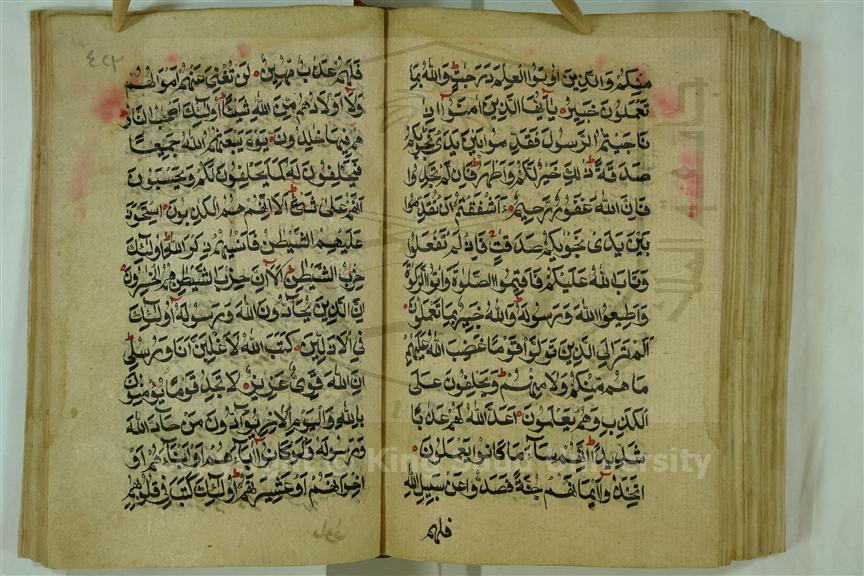 منكم والذين اوتوا العلم درجت والله بما
تعملون خبير يايها الذين امنوا اذا
ناجيتم الرسول فقدموا بين يدى نجوىكم
صدقة ذلك خير لكم واطهر فان لم تجدوا
فان الله غفور رحيم ءاشفقتم ان تقدموا
بين يدى نجوىكم صدقت فاذ لم تفعلوا
وتاب الله عليكم فاقيموا الصلوة واتوا الزكوة
واطيعوا الله ورسوله والله خبير بما تعملون
الم تر الى الذين تولوا قوما غضب الله عليهم
ما هم منكم ولا منهم ويحلفون على
الكذب وهم يعلمون اعد الله لهم عذابا
شديدا انهم ساء ما كانوا يعملون
اتخذوا ايمانهم جنة فصدوا عن سبيل الله
فلهم
٤٢٢
فلهم عذاب مهين لن تغنى عنهم اموالهم
ولا اولادهم من الله شيئا اولئك اصحب النار
هم فيها خلدون يوم يبعثهم الله جميعا
فيحلفون له كما يحلفون لكم ويحسبون
انهم على شىء الا انهم هم الكذبون استحوذ
عليهم الشيطن فانسيهم ذكر الله اولئك
حزب الشيطن الا ان حزب الشيطن هم الخسرون
ان الذين يحادون الله ورسوله اولئك
فى الاذلين كتب الله لاغلبن انا ورسلى
ان الله قوى عزيز لا تجد قوما يؤمنون
بالله واليوم الاخر يوادون من حاد الله
ورسوله ولو كانوا اباءهم او ابناءهم او
اخوانهم او عشيرتهم اولئك كتب فى قلوبهم
King Saud University